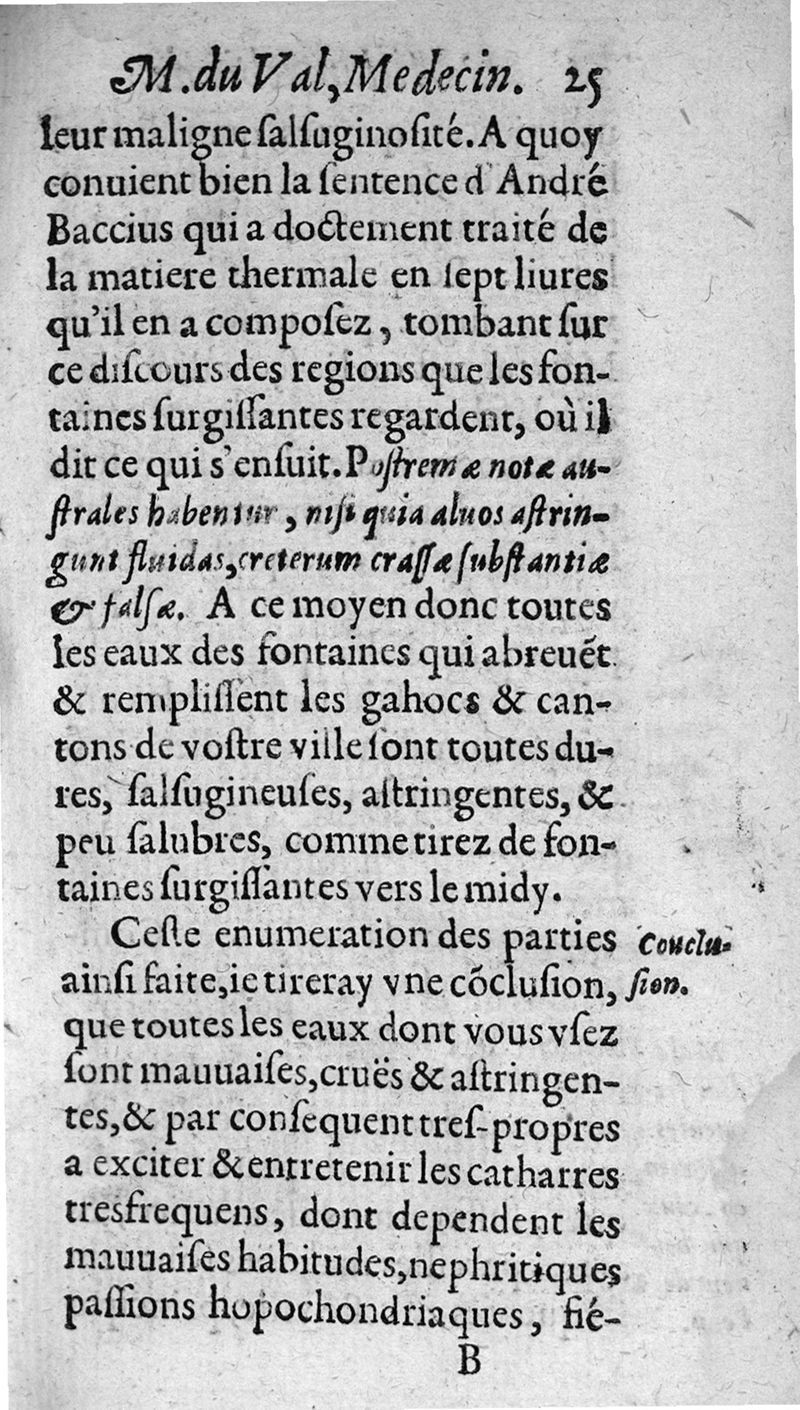 M. du Val, Medecin. 25
leur maligne ſalſuginoſité. A quoy
conuient bien la ſentence d'André
Baccius qui a doctement traité de
la matiere thermale en ſept liures
qu'il en a compoſez, tombant ſur
ce diſcours des regions que les fon-
taines ſurgiſſantes regardent, où il
dit ce qui s'enſuit. Poſtremæ notæ au-
ſtrales habentur, niſi quia aluos aſtrin-
gunt fluidas, creterum craſſæ ſubſtantiæ
& ſalſæ. A ce moyen donc toutes
les eaux des fontaines qui abreuẽt
& rempliſſent les gahocs & can-
tons de voſtre ville ſont toutes du-
res, ſalſugineuſes, aſtringentes, &
peu ſalubres, comme tirez de fon-
taines ſurgiſſantes vers le midy.
Ceſte enumeration des parties Conclu-
ainſi faite, ie tireray vne cõcluſion, ſion.
que toutes les eaux dont vous vſez
ſont mauuaiſes, cruës & aſtringen-
tes, & par conſequent treſ-propres
a exciter & entretenir les catharres
tresfrequens, dont dependent les
mauuaiſes habitudes, nephritiques
paſſions hopochondriaques, fié-
B